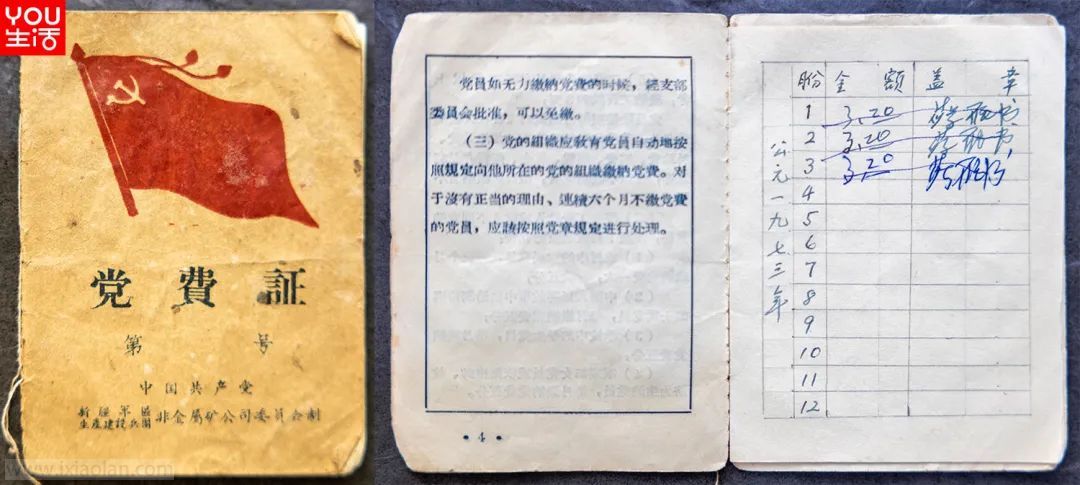 YOU
生活
党費証
第 号
中国共产党
新疆軍區
生產建設兵團 非金屬矿公司委員会制
www.ixiaolan.com
党員如无力繳納党費的时候，經支部
委員会批准，可以免繳。
（三）党的組織应敎育党員自动地按
照規定向他所在的党的組織繳納党費。对
于沒有正当的理由、連續六个月不繳党費
的党員，应該按照党章規定进行处理。
·4·
公元一九七三年
月份 金額 盖章
1 3.20
2 3.20
3 3.20
4
5
6
7
8
9
10
11
12